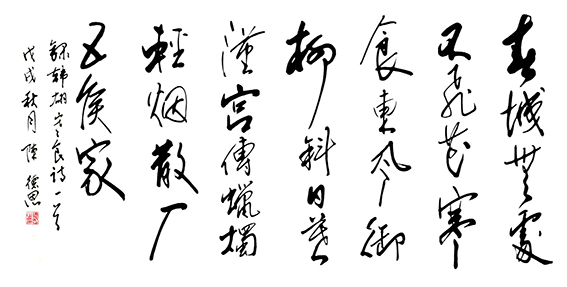 春城無處
不飛花寒
食東風御
柳斜日暮
漢宮傳蠟燭
輕烟散入
五侯家
録韓翃寒食詩一首
戊戌秋月